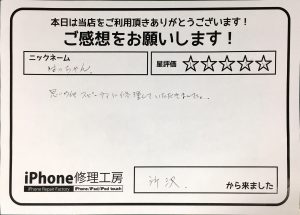 本日は当店をご利用頂きありがとうございます!
ご感想をお願いします!
ニックネーム
はっちゃん
星評価 ☆☆☆☆☆
スピーディに修理していただきました。
iPhone修理工房
iPhone Repair Factory iPhone/iPad/iPod touch
所沢
から来ました